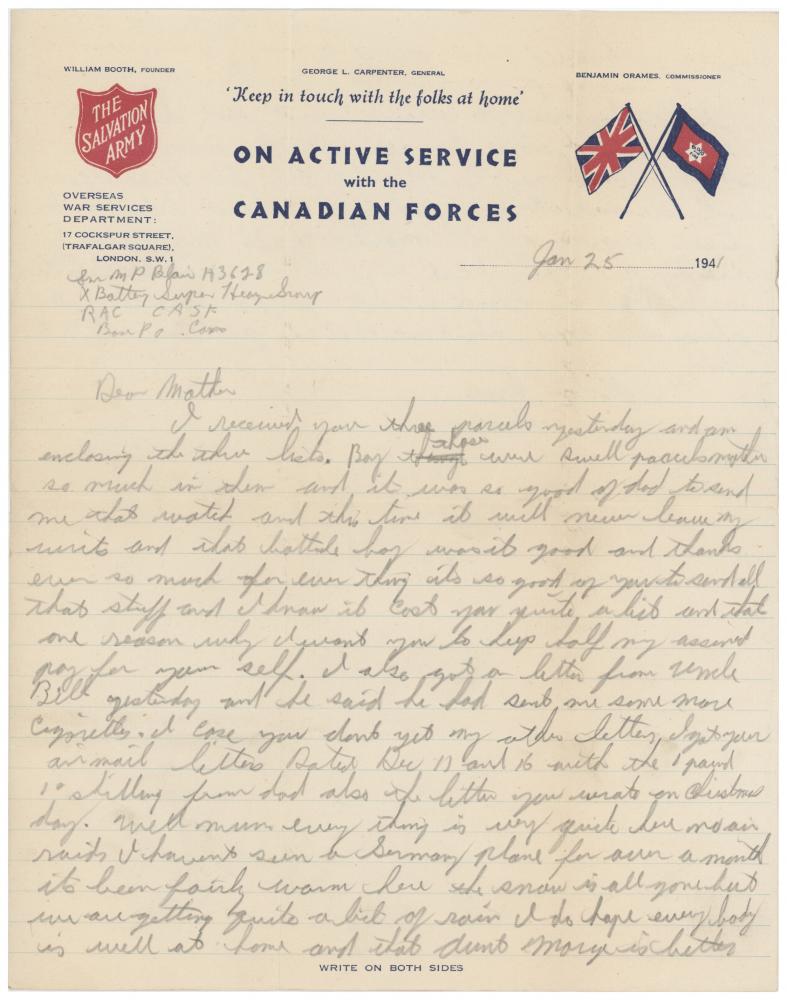 WILLIAM BOOTH, FOUNDER
GEORGE L. CARPENTER, GENERAL
BENJAMIN ORAMES, COMMISSIONER
THE
SALVATION
ARMY
'Keep in touch with the folks at home'
ON ACTIVE SERVICE
with the
CANADIAN FORCES
OVERSEAS
WAR SERVICES
DEPARTMENT:
17 COCKSPUR STREET,
(TRAFALGAR SQUARE),
LONDON. S.W.1
Jan 25 1941
M P Blair H3628
X Battery Super Heavy Group
RAC CASF
Base P O
Dear Mother
I received your three parcels yesterday and am
enclosing the three lists. Boy those were swell parcels mother
so much in them and it was so good of dad to send
me that watch and this time it will never leave my
and that boy was it good and thanks
ever so much for ever thing its so good of you to send all
that stuff and I know it cost you quite a bit and that
one reason why I want you to keep half my
pay for your self. I also got a letter from uncle
Bill yesterday and he said he had sent me some more
Cigarettes. I case you dont get my other letter, I got your
air mail letters Dated Dec 11 and 16 with the 1 pound
10 shilling from dad also the letter you wrote on Christmas
day. Well mum every thing is very quite here no air
raids I havent seen a German plane for over a month
its been fairly warm here the snow is all gone but
we are getting quite a bit of rain I do hope every body
is well at home and that Aunt Marge is better
WRITE ON BOTH SIDES